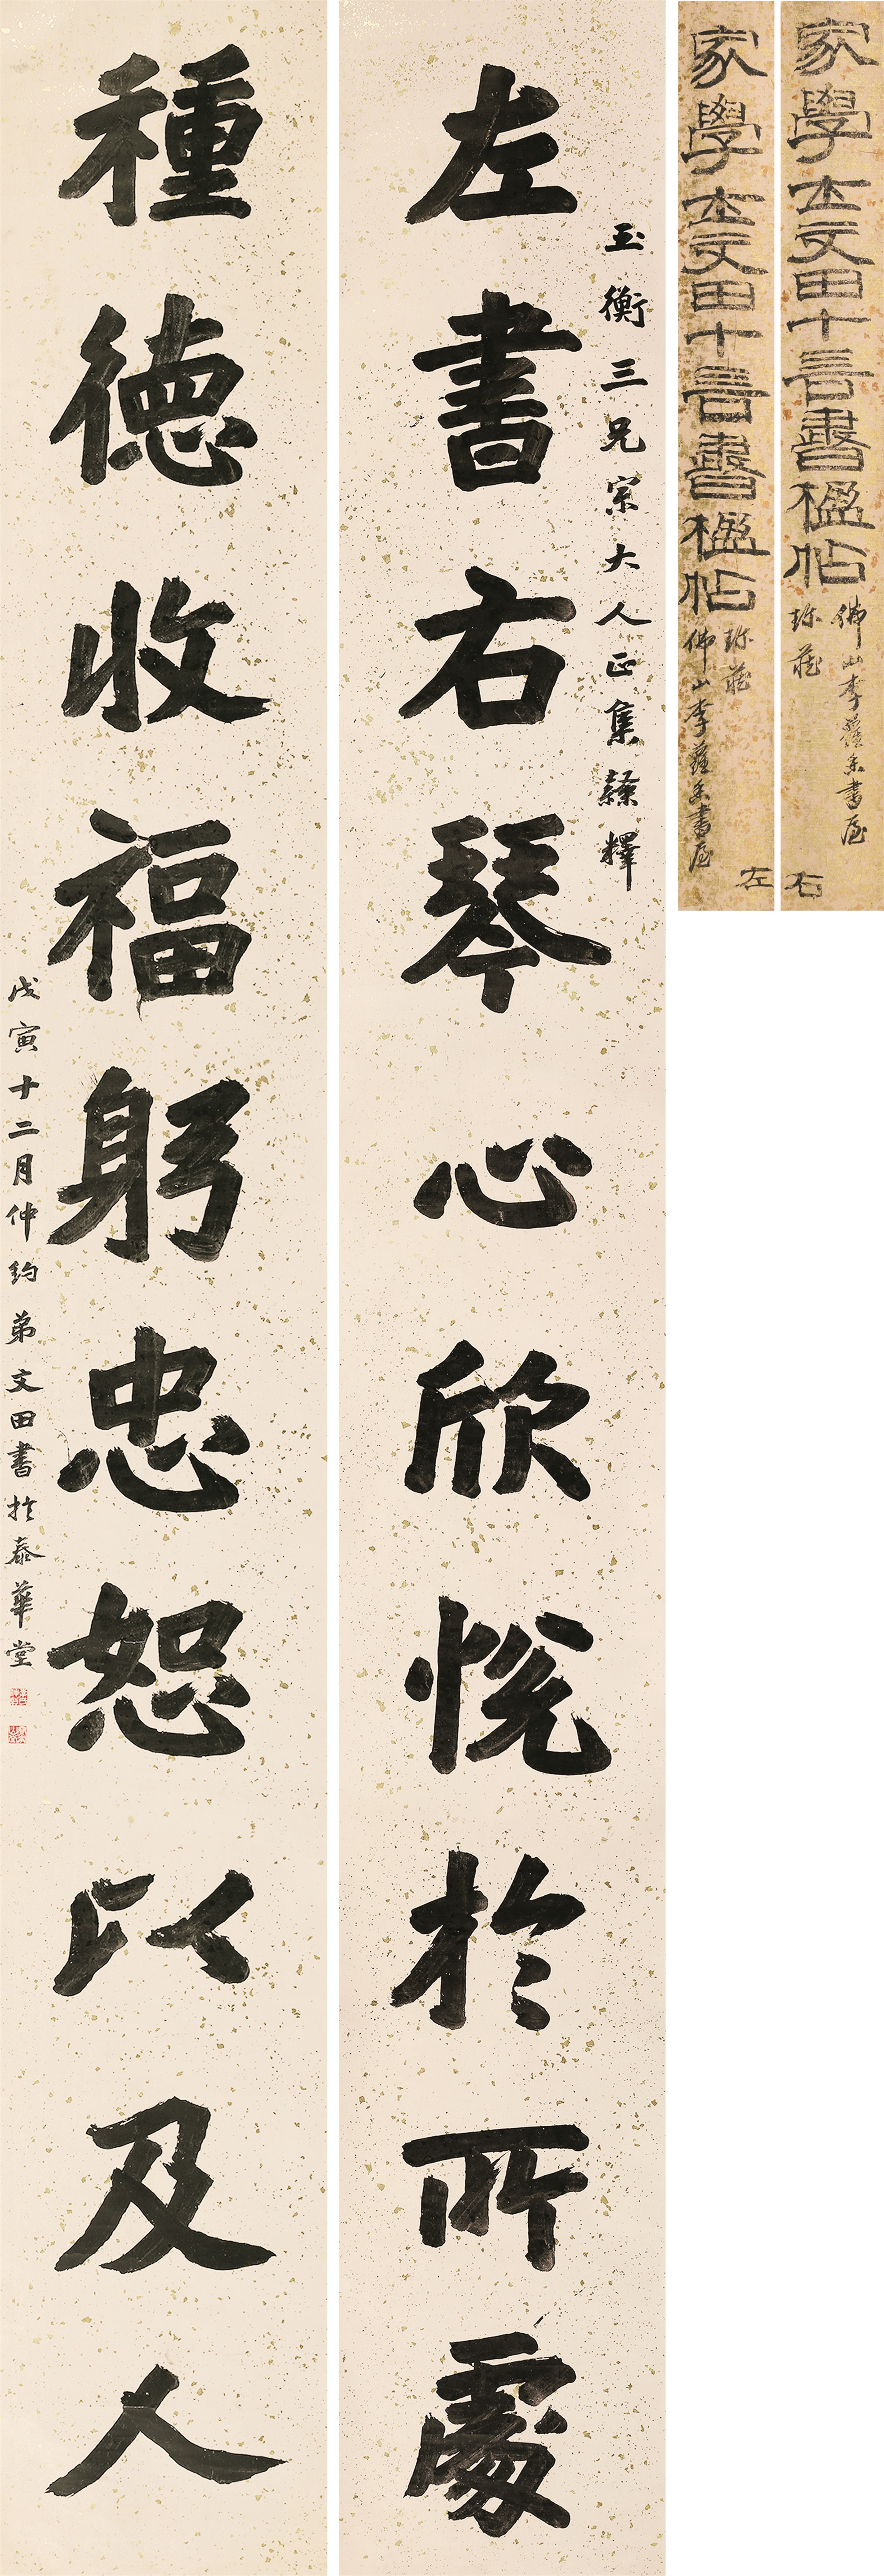 家學士文田十言書楹帖
佛山李蘿園書屋
珍藏
右
家學士文田十言書楹帖
珍藏
佛山李蘿園書屋
左
玉衡三兄宗大人正集繇釋
左書右琴心欣悅於所處
種德收福躬忠恕以及人
戊寅十二月仲約弟文田書於泰華堂